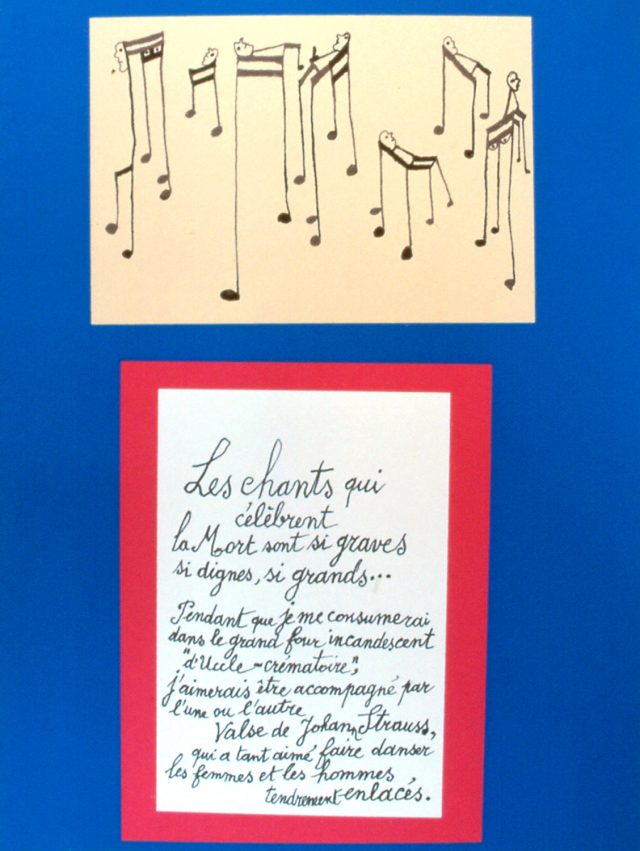 Les chants qui
célèbrent
la Mort sont si graves
si dignes, si grands...
Pendant que je me consumerai
dans le grand four incandescent
"d'Uccle-crématoire",
j'aimerais être accompagné par
l'une ou l'autre
Valse de Johann Strauss,
qui a tant aimé faire danser
les femmes et les hommes
tendrement enlacés.